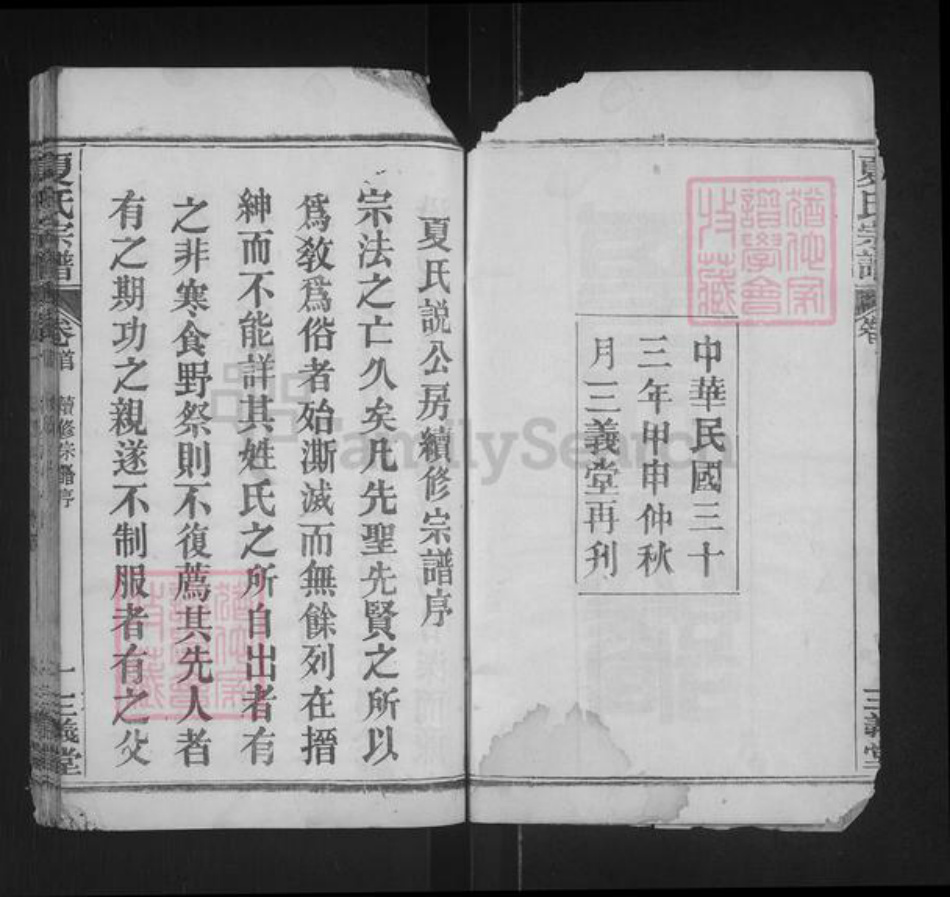 夏氏宗譜
卷
三義堂
中華民國三十
三年甲申仲秋
月三義堂再刊
夏氏説公房續修宗譜序
宗法之亡久矣凡先聖先賢之所以
爲教爲俗者始澌滅而無餘列在搢
紳而不能詳其姓氏之所自出者有
之非寒食野祭則不復薦其先人者
有之期功之親遂不制服者有之父
夏氏宗譜
卷首
續修宗譜序
一
三義堂
FamilySearch